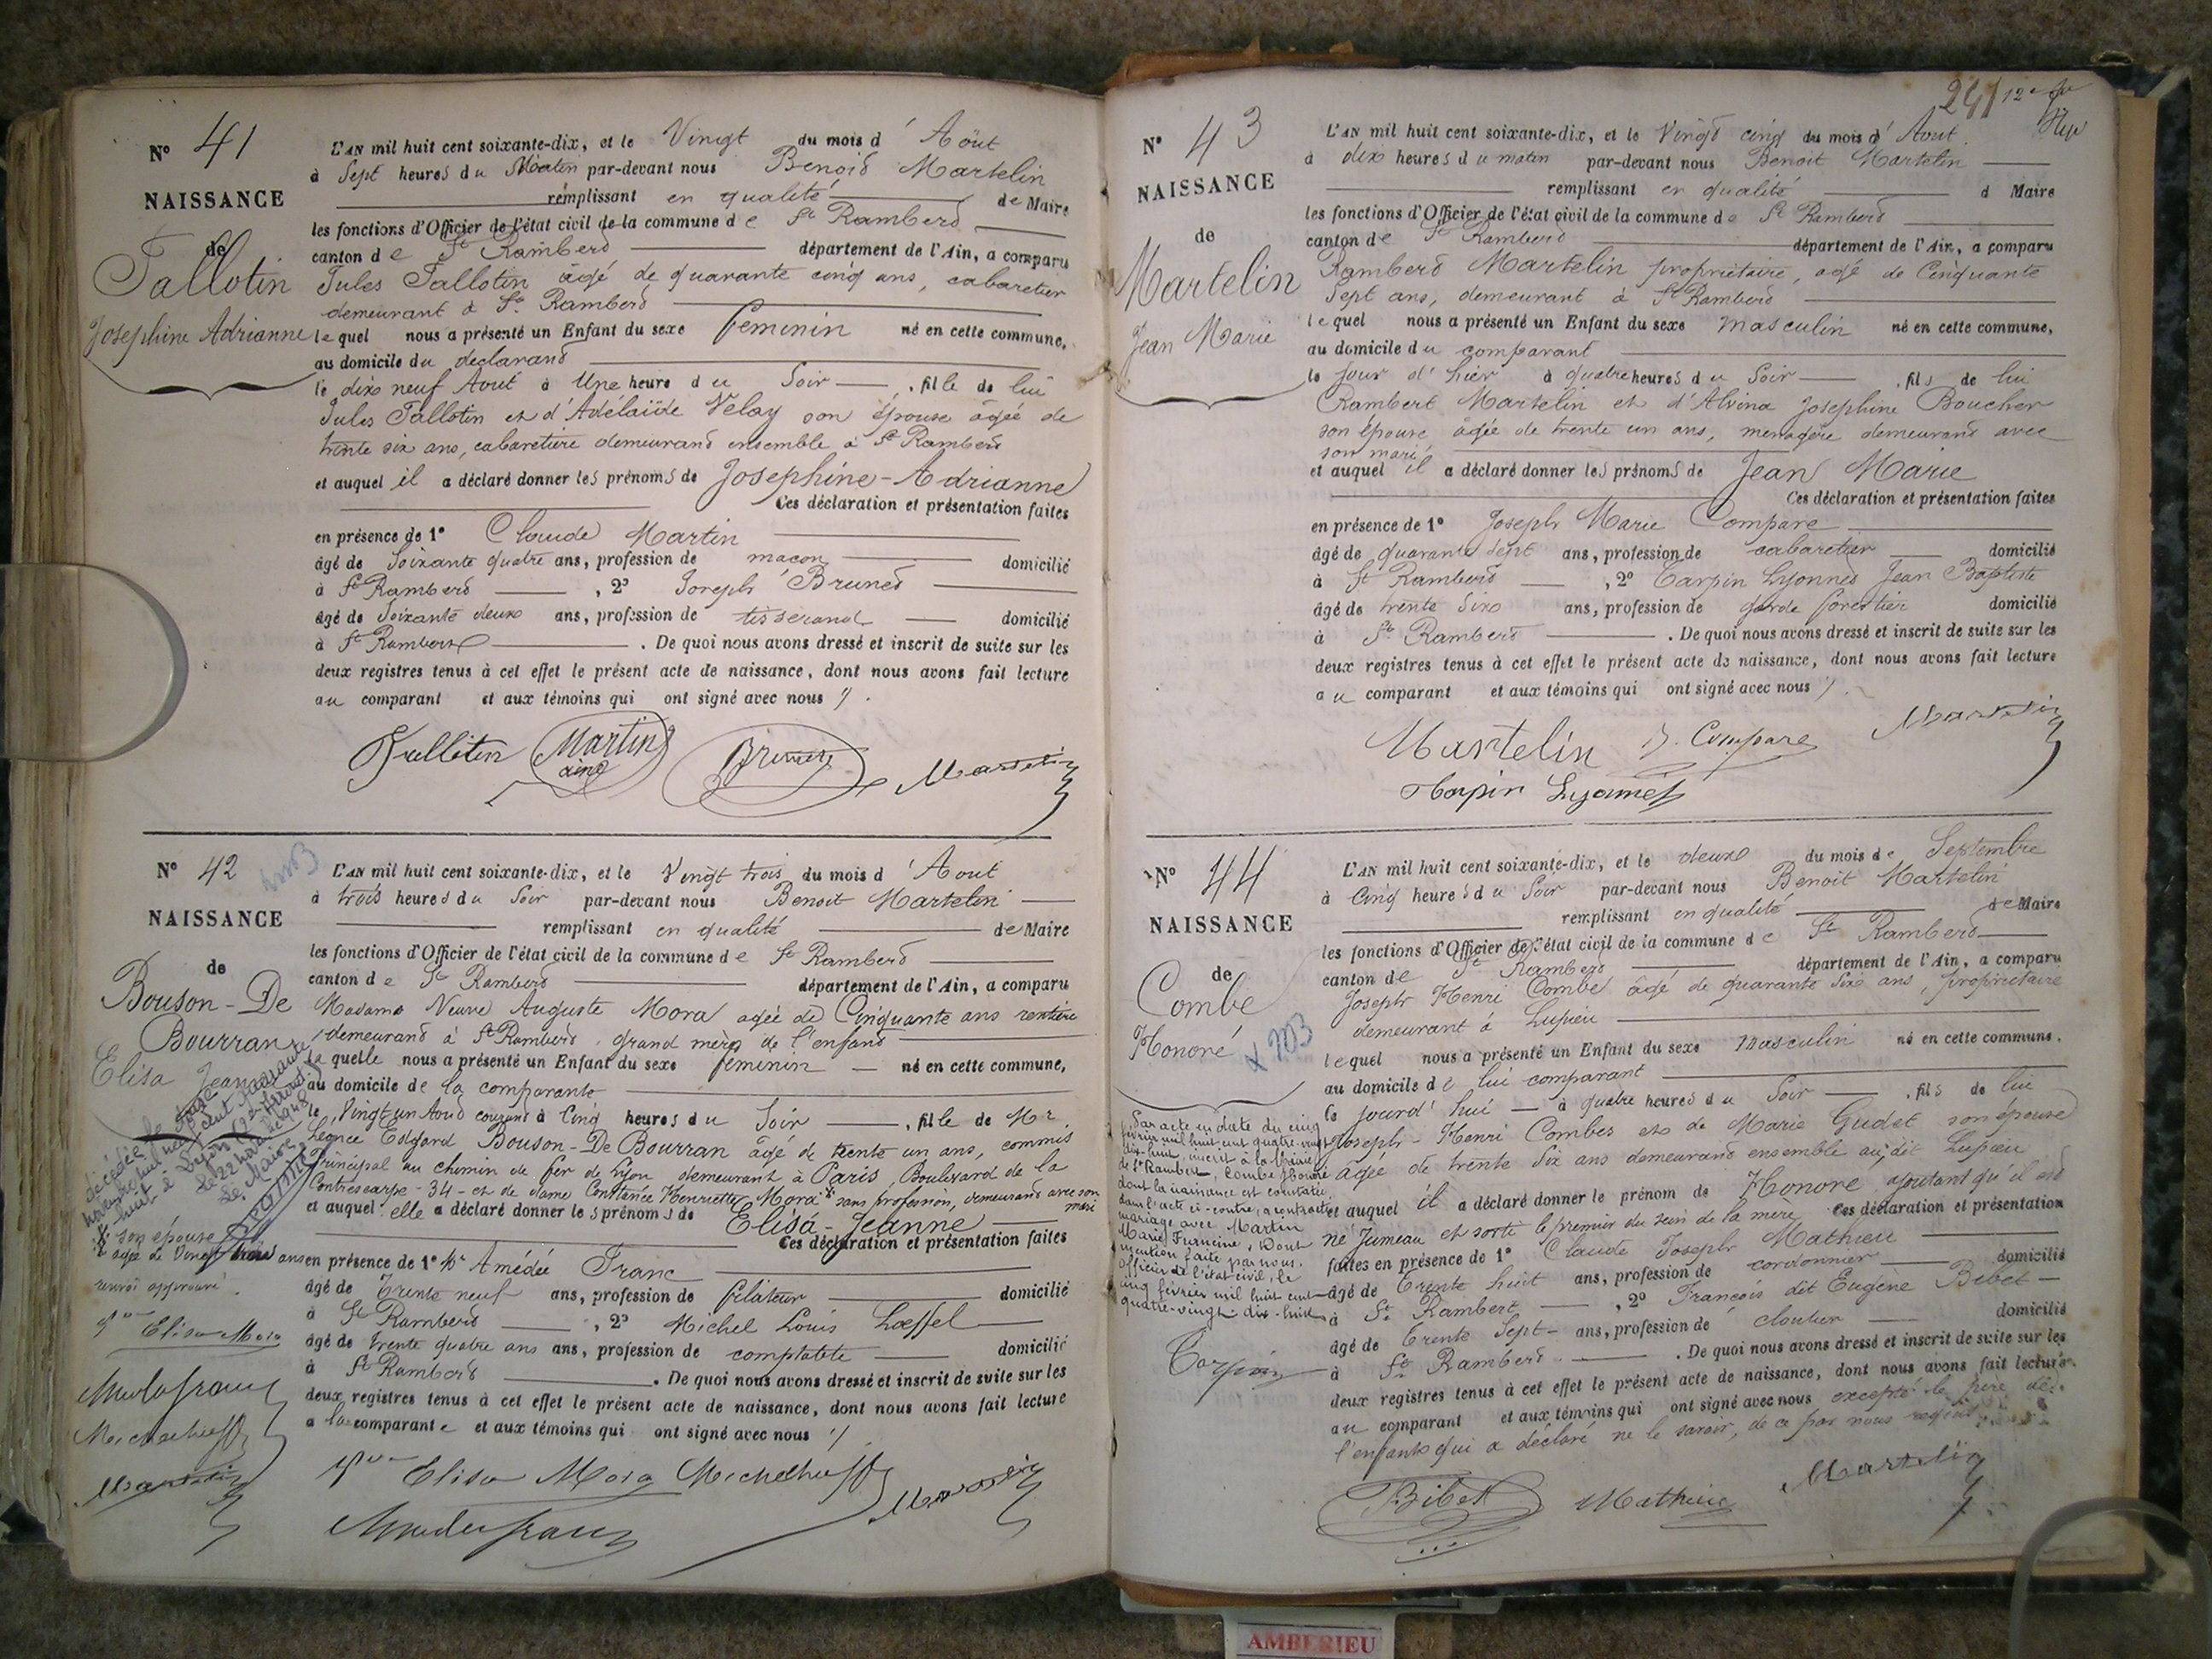 N° 41
NAISSANCE
de
Tallotin
Josephine Adrianne
L'AN mil huit cent soixante-dix, et le Vingt du mois d'Aôut
à Sept heures du Matin par-devant nous Benoit Martelin
remplissant en qualité de Maire
les fonctions d'Officier de l'état civil de la commune de St Rambert
canton de St Rambert département de l'Ain, a comparu
Jules Tallotin âgé de quarante cinq ans, cabaretier
demeurant à St Rambert
lequel nous a présenté un Enfant du sexe feminin né en cette commune,
au domicile du déclarant
le dix neuf Aout à Une heure du Soir, fille de lui
Jules Tallotin et d'Adélaïde Velay son épouse âgée de
trente six ans, cabaretière demeurant ensemble à St Rambert
et auquel il a déclaré donner les prénoms de Josephine-Adrianne
Ces déclaration et présentation faites
en présence de 1° Claude Martin
âgé de Soixante quatre ans, profession de maçon domicilié
à St Rambert, 2° Joseph Brunet
âgé de Soixante deux ans, profession de tisserand domicilié
à St Rambert. De quoi nous avons dressé et inscrit de suite sur les
deux registres tenus à cet effet le présent acte de naissance, dont nous avons fait lecture
au comparant et aux témoins qui ont signé avec nous
Tallotin Martin ainé Brunet Martelin
N° 42
NAISSANCE
de
Bouson-De
Bourran
Elisa Jeanne
L'AN mil huit cent soixante-dix, et le Vingt trois du mois d'Aout
à trois heures du Soir par-devant nous Benoit Martelin
remplissant en qualité de Maire
les fonctions d'Officier de l'état civil de la commune de St Rambert
canton de St Rambert département de l'Ain, a comparu
Madame Veuve Auguste Mora agée de Cinquante ans rentière
demeurant à St Rambert, grand mère de l'enfant
laquelle nous a présenté un Enfant du sexe féminin né en cette commune,
au domicile de la comparante
le Vingt un Aout courant à Cinq heures du Soir, fille de Mr
Léonce Edgard Bouson-De Bourran âgé de trente un ans, commis
Principal au chemin de fer de Lyon demeurant à Paris, Boulevard de la
Contrescarpe-34- et de dame Constance Henriette Mora sans profession, demeurant avec son mari
et auquel elle a déclaré donner les prénoms de Elisa-Jeanne
Ces déclaration et présentation faites
en présence de 1° Mr Amédée Franc
âgé de Trente neuf ans, profession de filateur domicilié
à St Rambert, 2° Michel Louis Lœffel
âgé de trente quatre ans ans, profession de comptable domicilié
à St Rambert. De quoi nous avons dressé et inscrit de suite sur les
deux registres tenus à cet effet le présent acte de naissance, dont nous avons fait lecture
a la comparante et aux témoins qui ont signé avec nous
décédée le
novembre mil neuf cent quarante
huit à Lyon
le 22 novembre 1948
Le Maire
son épouse
agée de Vingt trois ans
renvoi approuvé.
Elisa Mora
Martelin
Elisa Mora Martelin
N° 43
NAISSANCE
de
Martelin
Jean Marie
241
L'AN mil huit cent soixante-dix, et le Vingt cinq du mois d'Aout
à dix heures du matin par-devant nous Benoit Martelin
remplissant en qualité d Maire
les fonctions d'Officier de l'état civil de la commune de St Rambert
canton de St Rambert département de l'Ain, a comparu
Rambert Martelin propriétaire, agé de Cinquante
Sept ans, demeurant à St Rambert
lequel nous a présenté un Enfant du sexe masculin né en cette commune,
au domicile du comparant
le jour d'hier à quatre heures du Soir, fils de lui
Rambert Martelin et d'Alvina Josephine Boucher
son épouse agée de trente un ans, menagère demeurant avec
son mari
et auquel il a déclaré donner les prénoms de Jean Marie
Ces déclaration et présentation faites
en présence de 1° Joseph Marie Compare
âgé de quarante sept ans, profession de cabaretier domicilié
à St Rambert, 2° Tarpin Lyonnet Jean Baptiste
âgé de trente Six ans, profession de garde forestier domicilié
à St Rambert. De quoi nous avons dressé et inscrit de suite sur les
deux registres tenus à cet effet le présent acte de naissance, dont nous avons fait lecture
au comparant et aux témoins qui ont signé avec nous
Martelin Compare Martelin
Tarpin Lyonnet
N° 44
NAISSANCE
de
Combe
Honoré
L'AN mil huit cent soixante-dix, et le deux du mois de Septembre
à Cinq heures du Soir par-devant nous Benoit Martelin
remplissant en qualité de Maire
les fonctions d'Officier de l'état civil de la commune de St Rambert
canton de St Rambert département de l'Ain, a comparu
Joseph Henri Combe âgé de quarante Six ans, propriétaire
demeurant à Lupieu
lequel nous a présenté un Enfant du sexe Masculin né en cette commune.
au domicile de lui comparant
le jourd'hui à quatre heures du Soir, fils de lui
Joseph-Henri Combes et de Marie Gudet son épouse
âgée de trente Six ans demeurant ensemble au dit Lupieu
et auquel il a déclaré donner le prénom de Honoré ajoutant qu'il est
né Jumeau et sorti le premier du sein de la mère Ces déclaration et présentation
faites en présence de 1° Claude Joseph Mathieu
âgé de trente huit ans, profession de cordonnier domicilié
à St Rambert, 2° François dit Eugène Bibet
âgé de trente Sept ans, profession de cloutier domicilié
à St Rambert. De quoi nous avons dressé et inscrit de suite sur les
deux registres tenus à cet effet le présent acte de naissance, dont nous avons fait lecture
au comparant et aux témoins qui ont signé avec nous excepté le père de
l'enfant qui a déclaré ne le savoir, de ce par nous requis
Par acte en date du cinq
février mil huit cent quatre-vingt
dix-huit, inscrit à la Mairie
de St Rambert, Combe Honoré
dont la naissance est constatée
dans l'acte ci-contre, a contracté
mariage avec Martin
Marie Francine, Dont
mention faite par nous
officier de l'état civil, le
cinq février mil huit cent
quatre-vingt-dix-huit.
Tarpin
Bibet Mathieu Martelin
AMBERIEU